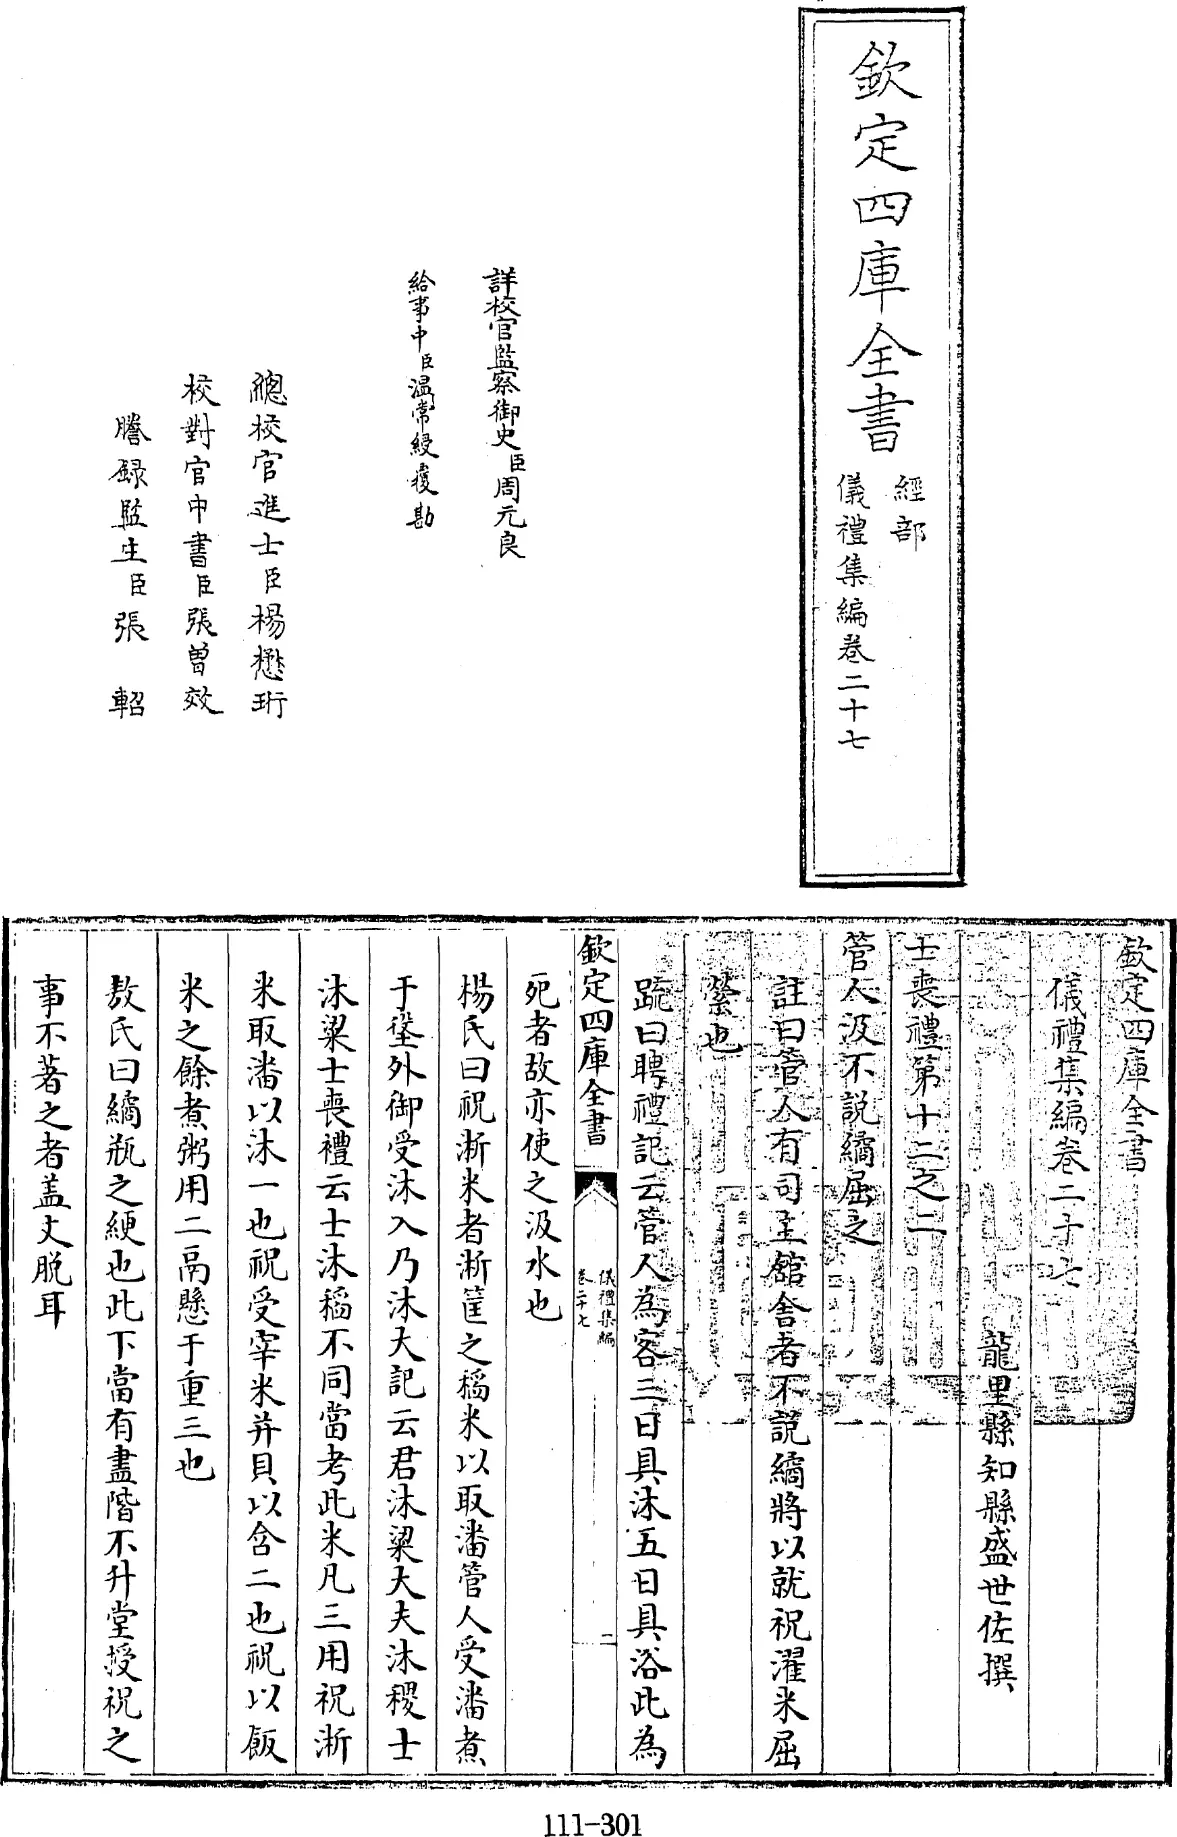 欽定四庫全書
經部
儀禮集編卷二十七
詳校官監察御史臣周元良
給事中臣温常綬覆勘
總校官進士臣楊懋珩
校對官中書臣張曾效
謄録監生臣張 軺
欽定四庫全書
儀禮集編卷二十七
龍里縣知縣盛世佐撰
士喪禮第十二之二
管人汲不說繘屈之
註曰管人有司主館舍者不說繘將以就祝濯米屈
縈也
疏曰聘禮記云管人為客三日具沐五日具浴此為
欽定四庫全書
儀禮集編
卷二十七
二
死者故亦使之汲水也
楊氏曰祝淅米者淅筐之稻米以取潘管人受潘煮
于垼外御受沐入乃沐大記云君沐粱大夫沐稷士
沐粱士喪禮云士沐稻不同當考此米凡三用祝淅
米取潘以沐一也祝受宰米并貝以含二也祝以飯
米之餘煮粥用二鬲懸于重三也
敖氏曰繘瓶之綆也此下當有盡階不升堂授祝之
事不著之者盖文脱耳
111-301